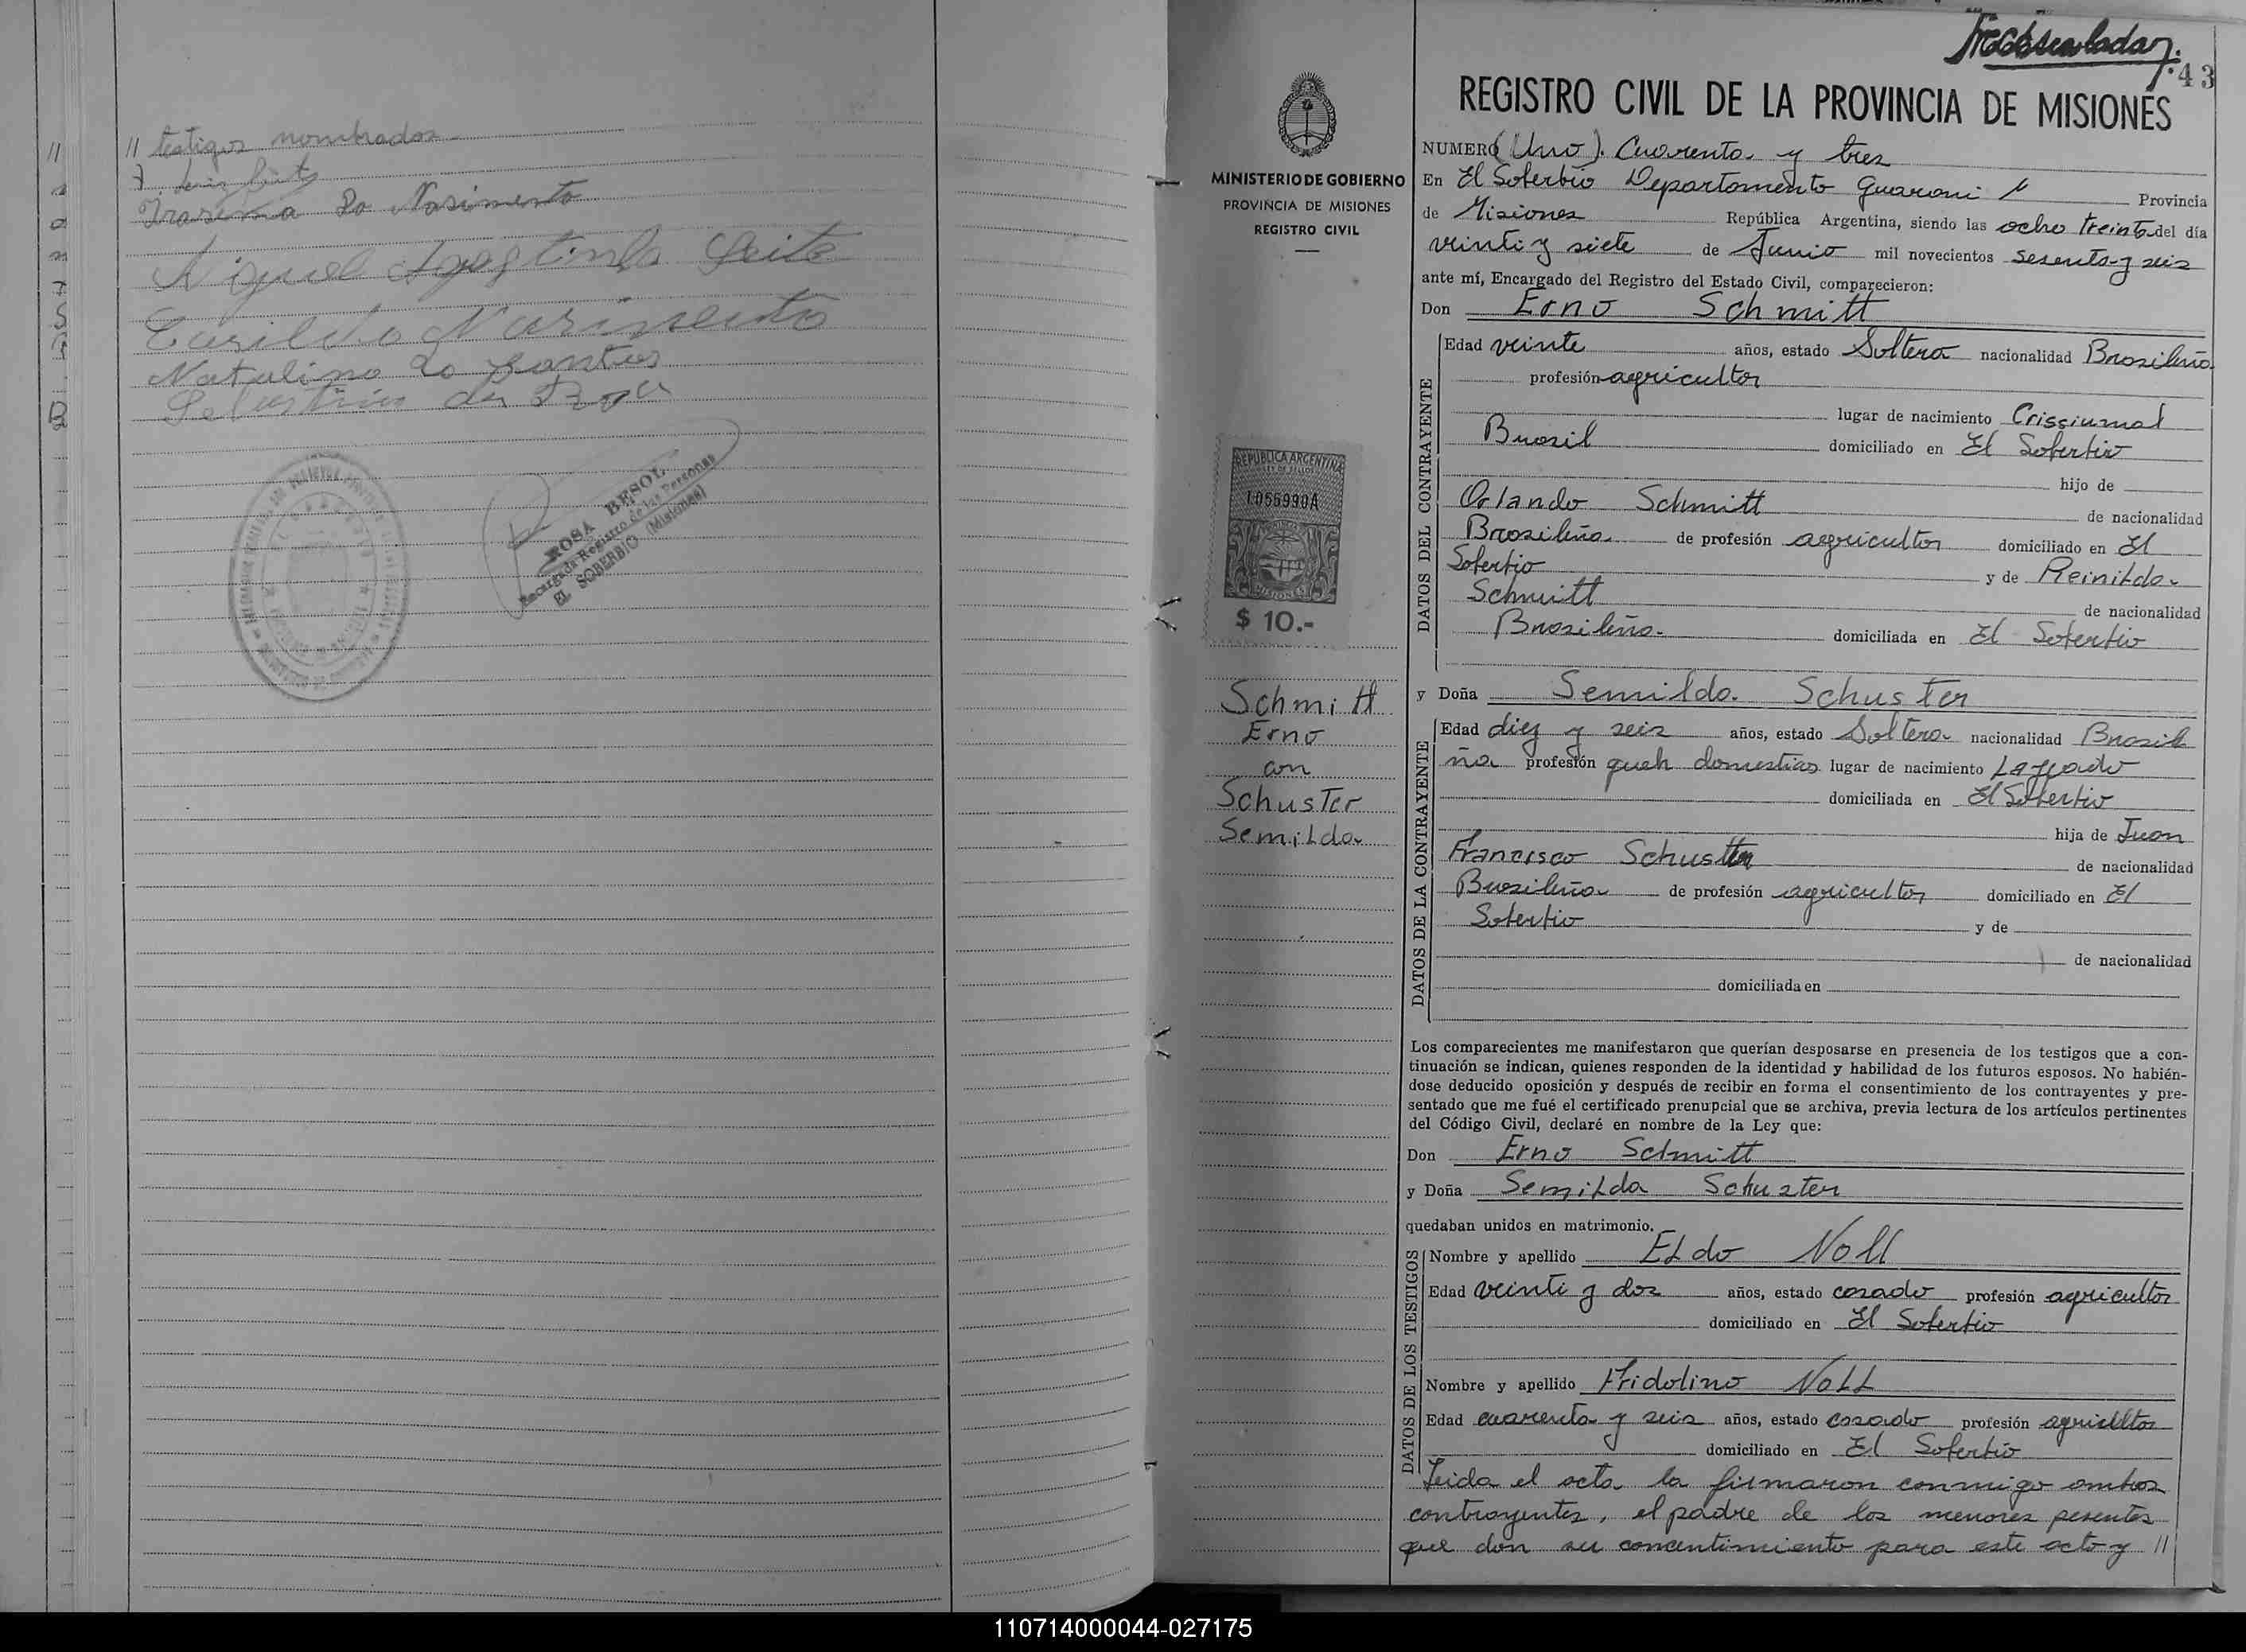 // testigos nombrados
Irasema Do Nasimento
Miguel Agostinho Leite
Nasimento
Natalino Do Santos
Sebastian da Rosa
ROSA BESOL
Encargada Registro de las Personas
EL SOBERBIO (Misiones)
43
REGISTRO CIVIL DE LA PROVINCIA DE MISIONES
MINISTERIO DE GOBIERNO
PROVINCIA DE MISIONES
REGISTRO CIVIL
REPUBLICA ARGENTINA
LEY DE SELLOS
1055990A
MISIONES
$ 10.-
Schmitt
Erno
con
Schuster
Semilda
NUMERO (Uno). Cuarenta y tres
En El Soberbio Departamento Guarani Provincia
de Misiones República Argentina, siendo las ocho treinta del día
veinti y siete de Junio mil novecientos sesenta y seis
ante mí, Encargado del Registro del Estado Civil, comparecieron:
Don Erno Schmitt
DATOS DEL CONTRAYENTE
Edad veinte años, estado Soltero nacionalidad Brasileña
profesión agricultor
lugar de nacimiento Crissiumal
Brasil domiciliado en El Soberbio
hijo de
Orlando Schmitt de nacionalidad
Brasileña de profesión agricultor domiciliado en El
Soberbio y de Reinilda
Schmitt de nacionalidad
Brasileña domiciliada en El Soberbio
y Doña Semilda Schuster
DATOS DE LA CONTRAYENTE
Edad diez y seis años, estado Soltera nacionalidad Brasile
ña profesión queh domesticos lugar de nacimiento Lageado
domiciliada en El Soberbio
hija de Juan
Francisco Schuster de nacionalidad
Brasileña de profesión agricultor domiciliado en El
Soberbio y de
de nacionalidad
domiciliada en
Los comparecientes me manifestaron que querían desposarse en presencia de los testigos que a con-
tinuación se indican, quienes responden de la identidad y habilidad de los futuros esposos. No habién-
dose deducido oposición y después de recibir en forma el consentimiento de los contrayentes y pre-
sentado que me fué el certificado prenupcial que se archiva, previa lectura de los artículos pertinentes
del Código Civil, declaré en nombre de la Ley que:
Don Erno Schmitt
y Doña Semilda Schuster
quedaban unidos en matrimonio.
DATOS DE LOS TESTIGOS
Nombre y apellido Eldo Noll
Edad veinti y dos años, estado casado profesión agricultor
domiciliado en El Soberbio
Nombre y apellido Fridolino Noll
Edad cuarenta y seis años, estado casado profesión agricultor
domiciliado en El Soberbio
Leida el acta la firmaron conmigo ambos
contrayentes, el padre de los menores pesentes
que dan su concentimiento para este acto y //
110714000044-027175